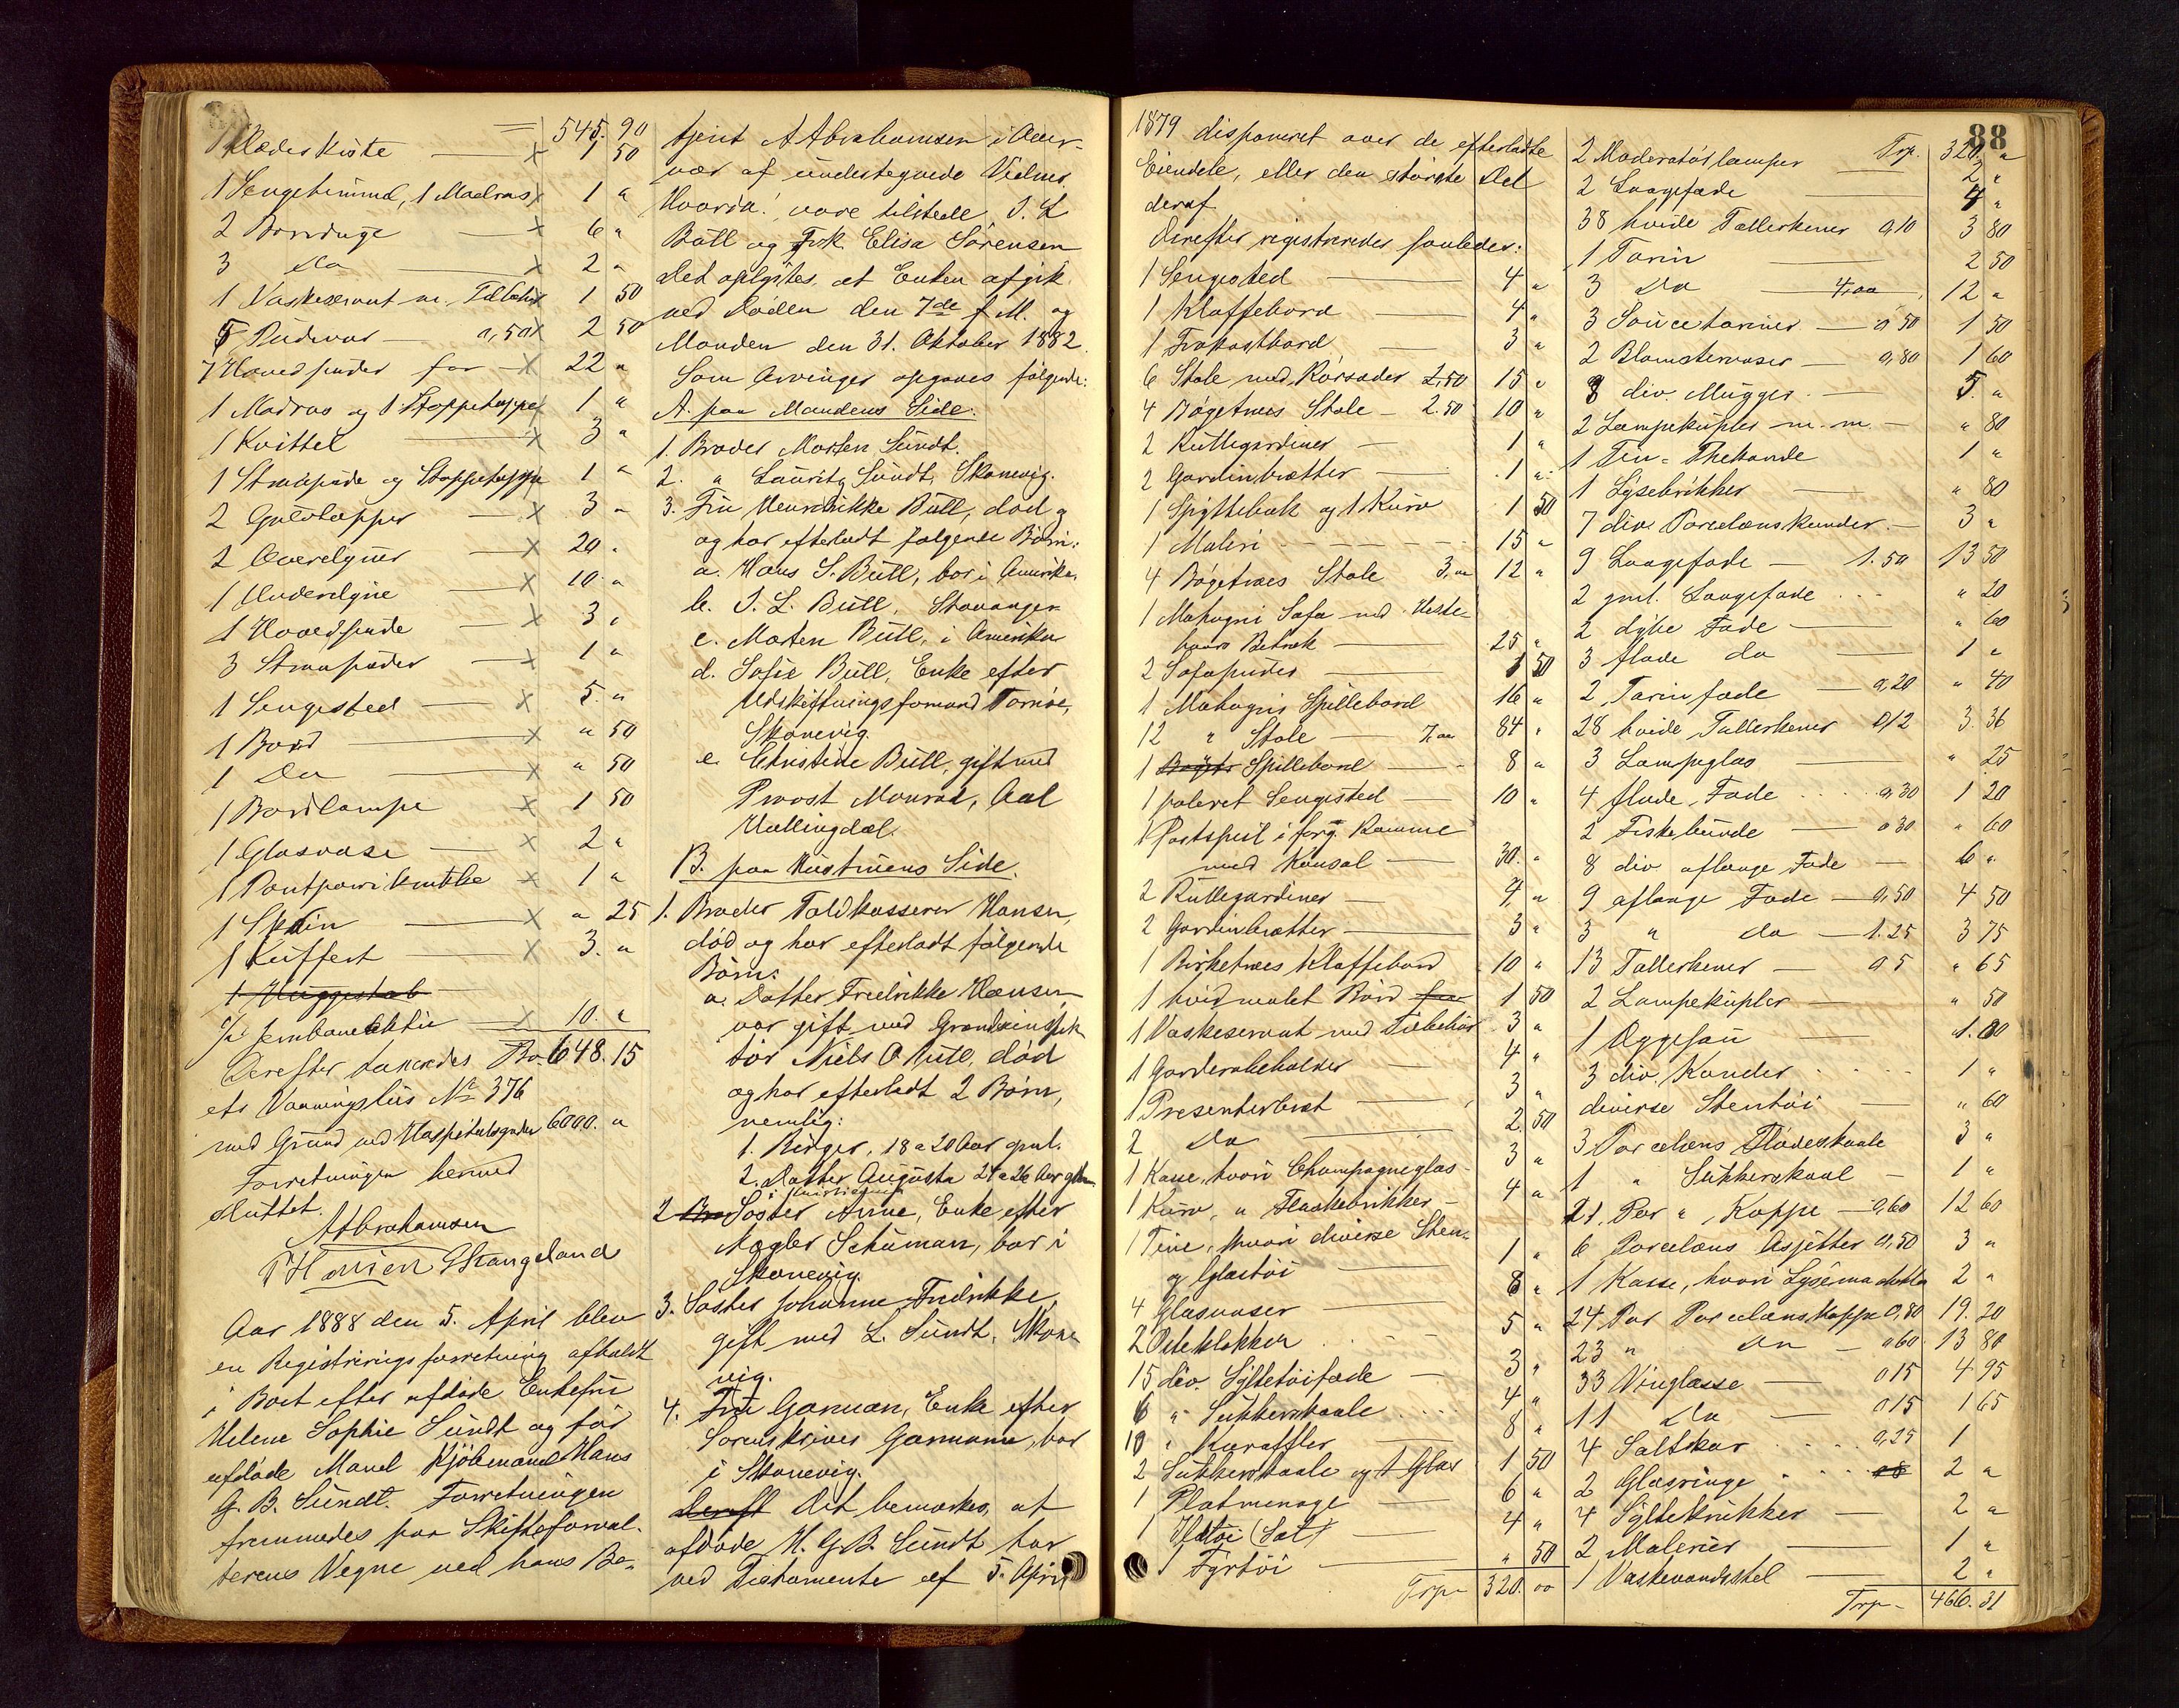 545.90
1 Klædeskiste — x 1 50
1 Sengehimmel, 1 Madras x 1 "
2 Bordduge — x 6 "
3 Do — x 2 "
1 Vaskeservant m. Tilbehør 1 50
5 Pudevar — 0,50 x 2 50
7 Hovedpuder for — x 22 "
1 Madras og 1 Stoppeteppe 1 "
1 Kvittel — x 3 "
1 Straapude og Stoppeteppe 1 "
2 Gulvtepper — x 3 "
2 Overdyner — x 20 "
1 Underdyne — x 10 "
1 Hovedpude — x 3 "
3 Straapuder — x 1 "
1 Sengested — x 5 "
1 Bord — x " 50
1 Do — x " 50
1 Bordlampe x 1 50
1 Glasvase — x 2 "
1 Pontpourikrukke x 1 "
1 Skrin — x " 25
1 Kuffert — x 3. "
1 Vuggestab
1/2 Jernbaneaktie — x 10. "
Derefter takseredes Kr. 648.15
ets Vaaningshus No 376
med Grund ved Hospitalsgaden 6000. "
Forretningen hermed
sluttet.
A Abrahamsen
T Hansen G Stangeland
Aar 1888 den 5. April blev
en Registreringsforretning afholdt
i Boet efter afdøde Enkefru
Helene Sophie Sundt og før
afdøde Mand Kjøbmand Hans
G. B. Sundt. Forretningen
fremmedes paa Skifteforval-
terens Vegne ved hans Be-
tjent A Abrahamsen i Over-
vær af undertegnede Vidner.
Hvorda! vare tilstede J. L
Bull og Frk Elisa Sørensen
Det oplystes, at Enken afgik
ved Døden den 7de f. M. og
Manden den 31. Oktober 1882.
Som Arvinger opgaves følgende:
A. paa Mandens Side.
1. Broder Morten Sundt.
2. " Lauritz Sundt, Skonevig.
3. Fru Hendrikke Bull, død og
og har efterladt følgende Børn:
a. Hans S. Bull, bor i Amerika.
b. J. L. Bull, Stavanger
c. Morten Bull, i Amerika
d. Sofie Bull, Enke efter
Udskiftningsformand Tornøe,
Skonevig.
e. Christine Bull, gift med
Provst Monrad, Aal
Hallingdal.
B. paa Hustruens Side.
1. Broder Toldkasserer Hansen,
død og har efterladt følgende
Børn:
a. Datter Fredrikke Hansen
var gift med Grændseinspek
tør Niels O Bull, død
og har efterladt 2 Børn,
nemlig:
1. Birger, 18 a 20 Aar gml.
2. Datter Augusta 24 a 26 Aar glm.
2 Bro Søster Anne, Enke efter
Mægler Schuman, bor i
Skonevig.
3. Søster Johanne Fredrikke,
gift med L. Sundt, Skone
vig.
4. Fru Garman, Enke efter
Sorenskriver Garmann, bor
i Skonevig.
Deraft Det bemærkes, at
afdøde H. G. B. Sundt har
ved Testamente af 5. April
88
1879 disponeret over de efterladte
Eiendele, eller den største Del
deraf
Derefter registreredes saaledes:
1 Sengested — 4 "
1 Klaffebord — 4 "
1 Frokostbord — 3 "
6 Stole med Rørsæder 2,50 15 "
4 Bøgetræes Stole — 2.50 10 "
2 Rullegardiner — 1 "
2 Gardinbrætter — 1 "
1 Spyttebak og 1 Kurv 1 50
1 Maleri — 15 "
4 Bøgetræes Stole 3,00 12 "
1 Mahogni Sofa med Heste-
haars Betræk — 25 "
2 Sofapuder — 1 50
1 Mahogni Spillebord 16 "
12 " Stole — 7,00 84 "
1 Bøgtr Spillebord — 8 "
1 poleret Sengested — 10 "
1 Postspeil i forg. Ramme
med Konsol — 30. "
2 Rullegardiner — 4 "
2 Gardinbrætter — 3 "
1 Birketræes Klaffebord 10 "
1 hvidmalet Bord for 1 50
1 Vaskeservant med Tilbehør 3 "
1 Garderobeholder — 4 "
1 Presenterbret — 3 "
2 Do — 2.50
1 Kasse, hvori Champagneglas — 3 "
1 Kurv, " Flaskebrikker — 4 "
1 Tine, hvori diverse Sten-
og Glastøi — 1 "
4 Glasvaser — 8 "
2 Osteklokker 5 "
15 div. Syltetøifade — 3 "
6 " Sukkerskaale 4 "
10 " Karafler — 8 "
2 Sukkerskaale og 1 Glas 1 50
1 Platmenage — 6 "
1 Ildtøi (Sat) — 4 "
1 Fyrtøi — " 50
Trp. 320. 00
Trp. 320. "
2 Moderatørlamper — 2 "
2 Laagefade — 4 "
38 hvide Tallerkener 0,10 3 80
1 Tarin — 2 50
3 Do — 4,00 12 "
3 Saucetariner — 0 50 1 50
2 Blomstervaser — 0,80 1 60
8 div. Mugger — 5. "
2 Lampekupler m.m — " 80
1 Tin-Thekande 1 "
1 Lysebrikker — " 80
7 div. Porcelænskander — 3 "
9 Laagefade — 1.50 13 50
2 gml. Laagefade " 20
2 dybe Fade — " 60
3 flade do — 1 "
2 Tarinfade — 0,20 " 40
28 hvide Tallerkener 0,12 3.36
3 Lampeglas — " 25
4 flade Fade 0,30 1 20
2 Fiskebunde — 0 30 " 60
8 div aflange Fade — 6 "
9 aflange Fade — 0,50 4 50
3 " do — 1.25 3 75
13 Tallerkener — 0 5 " 65
2 Lampekupler — " 50
1 Æggesau —
3 div. Kander 1 "
diverse Stentøi — " 60
3 Porcelæns Flødeskaale 3 "
1 " Sukkerskaal — 1 "
21 Par " Koppe — 0,60 12 60
6 Porcelæns Asjetter 0,50 3 "
1 Kasse, hvori 2 "
24 Par Porcelænskoppe 0,80 19.20
23 " do — 0.60 13 80
33 Vinglasse — 0 15 4 95
11 Do — 0 15 1 65
4 Saltkar 0,25 1
2 Glasringe 2 "
4 Syltekrukker — 2 "
2 Malerier — 1 "
1 Vaskevandsstel — 2 "
Trp. 466. 31